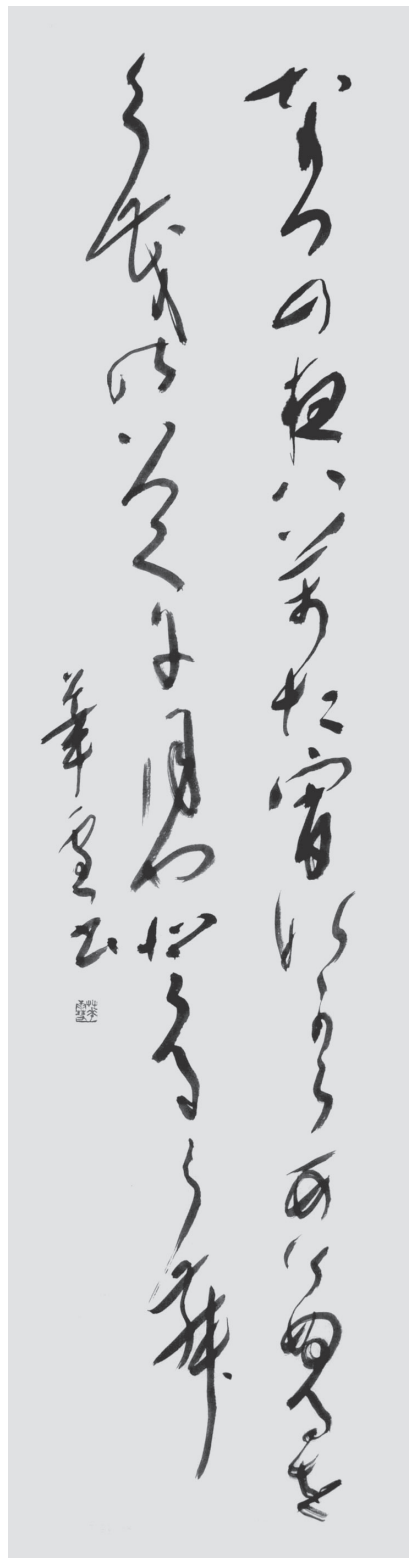 なつの夜八萬た宵なからあけぬるを
くものいつこに月やとるらむ
華雪書